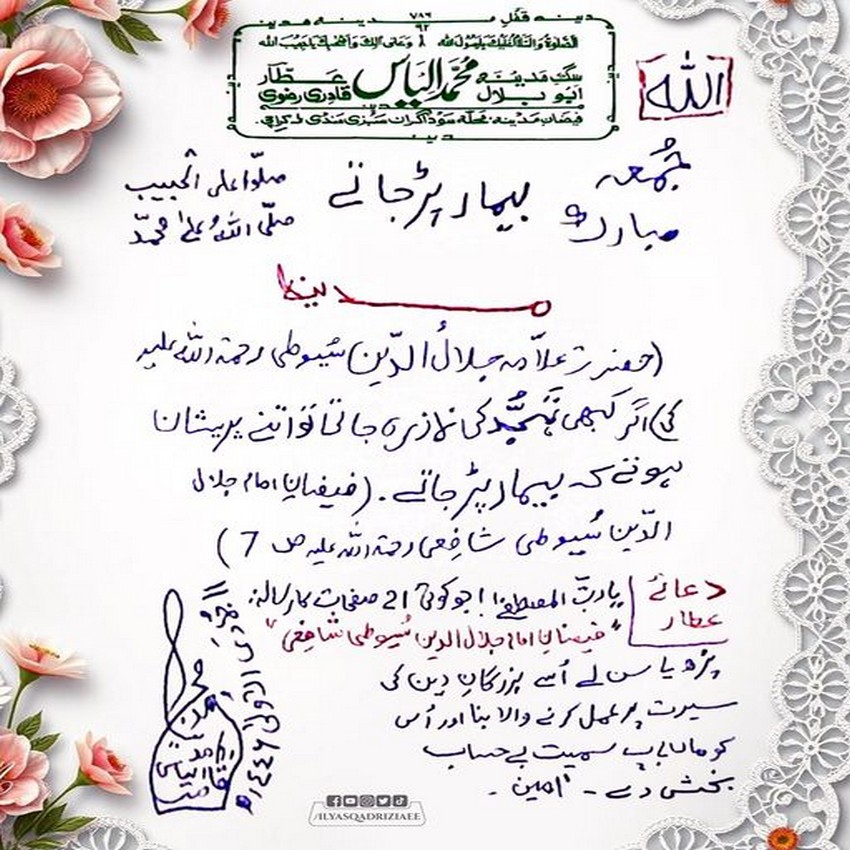 مدینہ قفل مدینہ مدینہ
۷۸۶
۹۲
الصلوۃ والسلام علیک یا رسول اللہ وعلی آلک واصحبک یا حبیب اللہ
سگ مدینہ محمد الیاس عطار
ابو بلال قادری رضوی
فیضان مدینہ محلہ سوداگران سبزی منڈی کراچی
مدینہ
اللہ
جُمعہ
مبارک
بیمار پڑ جاتے
صلّوا علی الحبیب
صلّی اللہُ علیٰ محمّد
مدینہ
(حضرت علّامہ جلالُ الدّین سُیوطی رحمۃ اللہ علیہ
کی) اگر کبھی تَہَجُّد کی نماز رہ جاتی تو اتنے پریشان
ہوتے کہ بیمار پڑ جاتے۔ (فیضانِ امام جلال
الدّین سُیوطی شافِعی رحمۃ اللہ علیہ ص 7)
دعائے
عطار
یاربّ المصطفےٰ! جو کوئی 21 صفحات کا رسالہ:
"فیضانِ امام جلال الدین سُیوطی شافِعی"
پڑھ یا سن لے اُسے بزرگانِ دین کی
سیرت پر عمل کرنے والا بنا اور اُس
کو ماں باپ سمیت بے حساب
بخش دے۔ اٰمین۔
۱۴۴۶ھ
/ILYASQADRIZIAEE